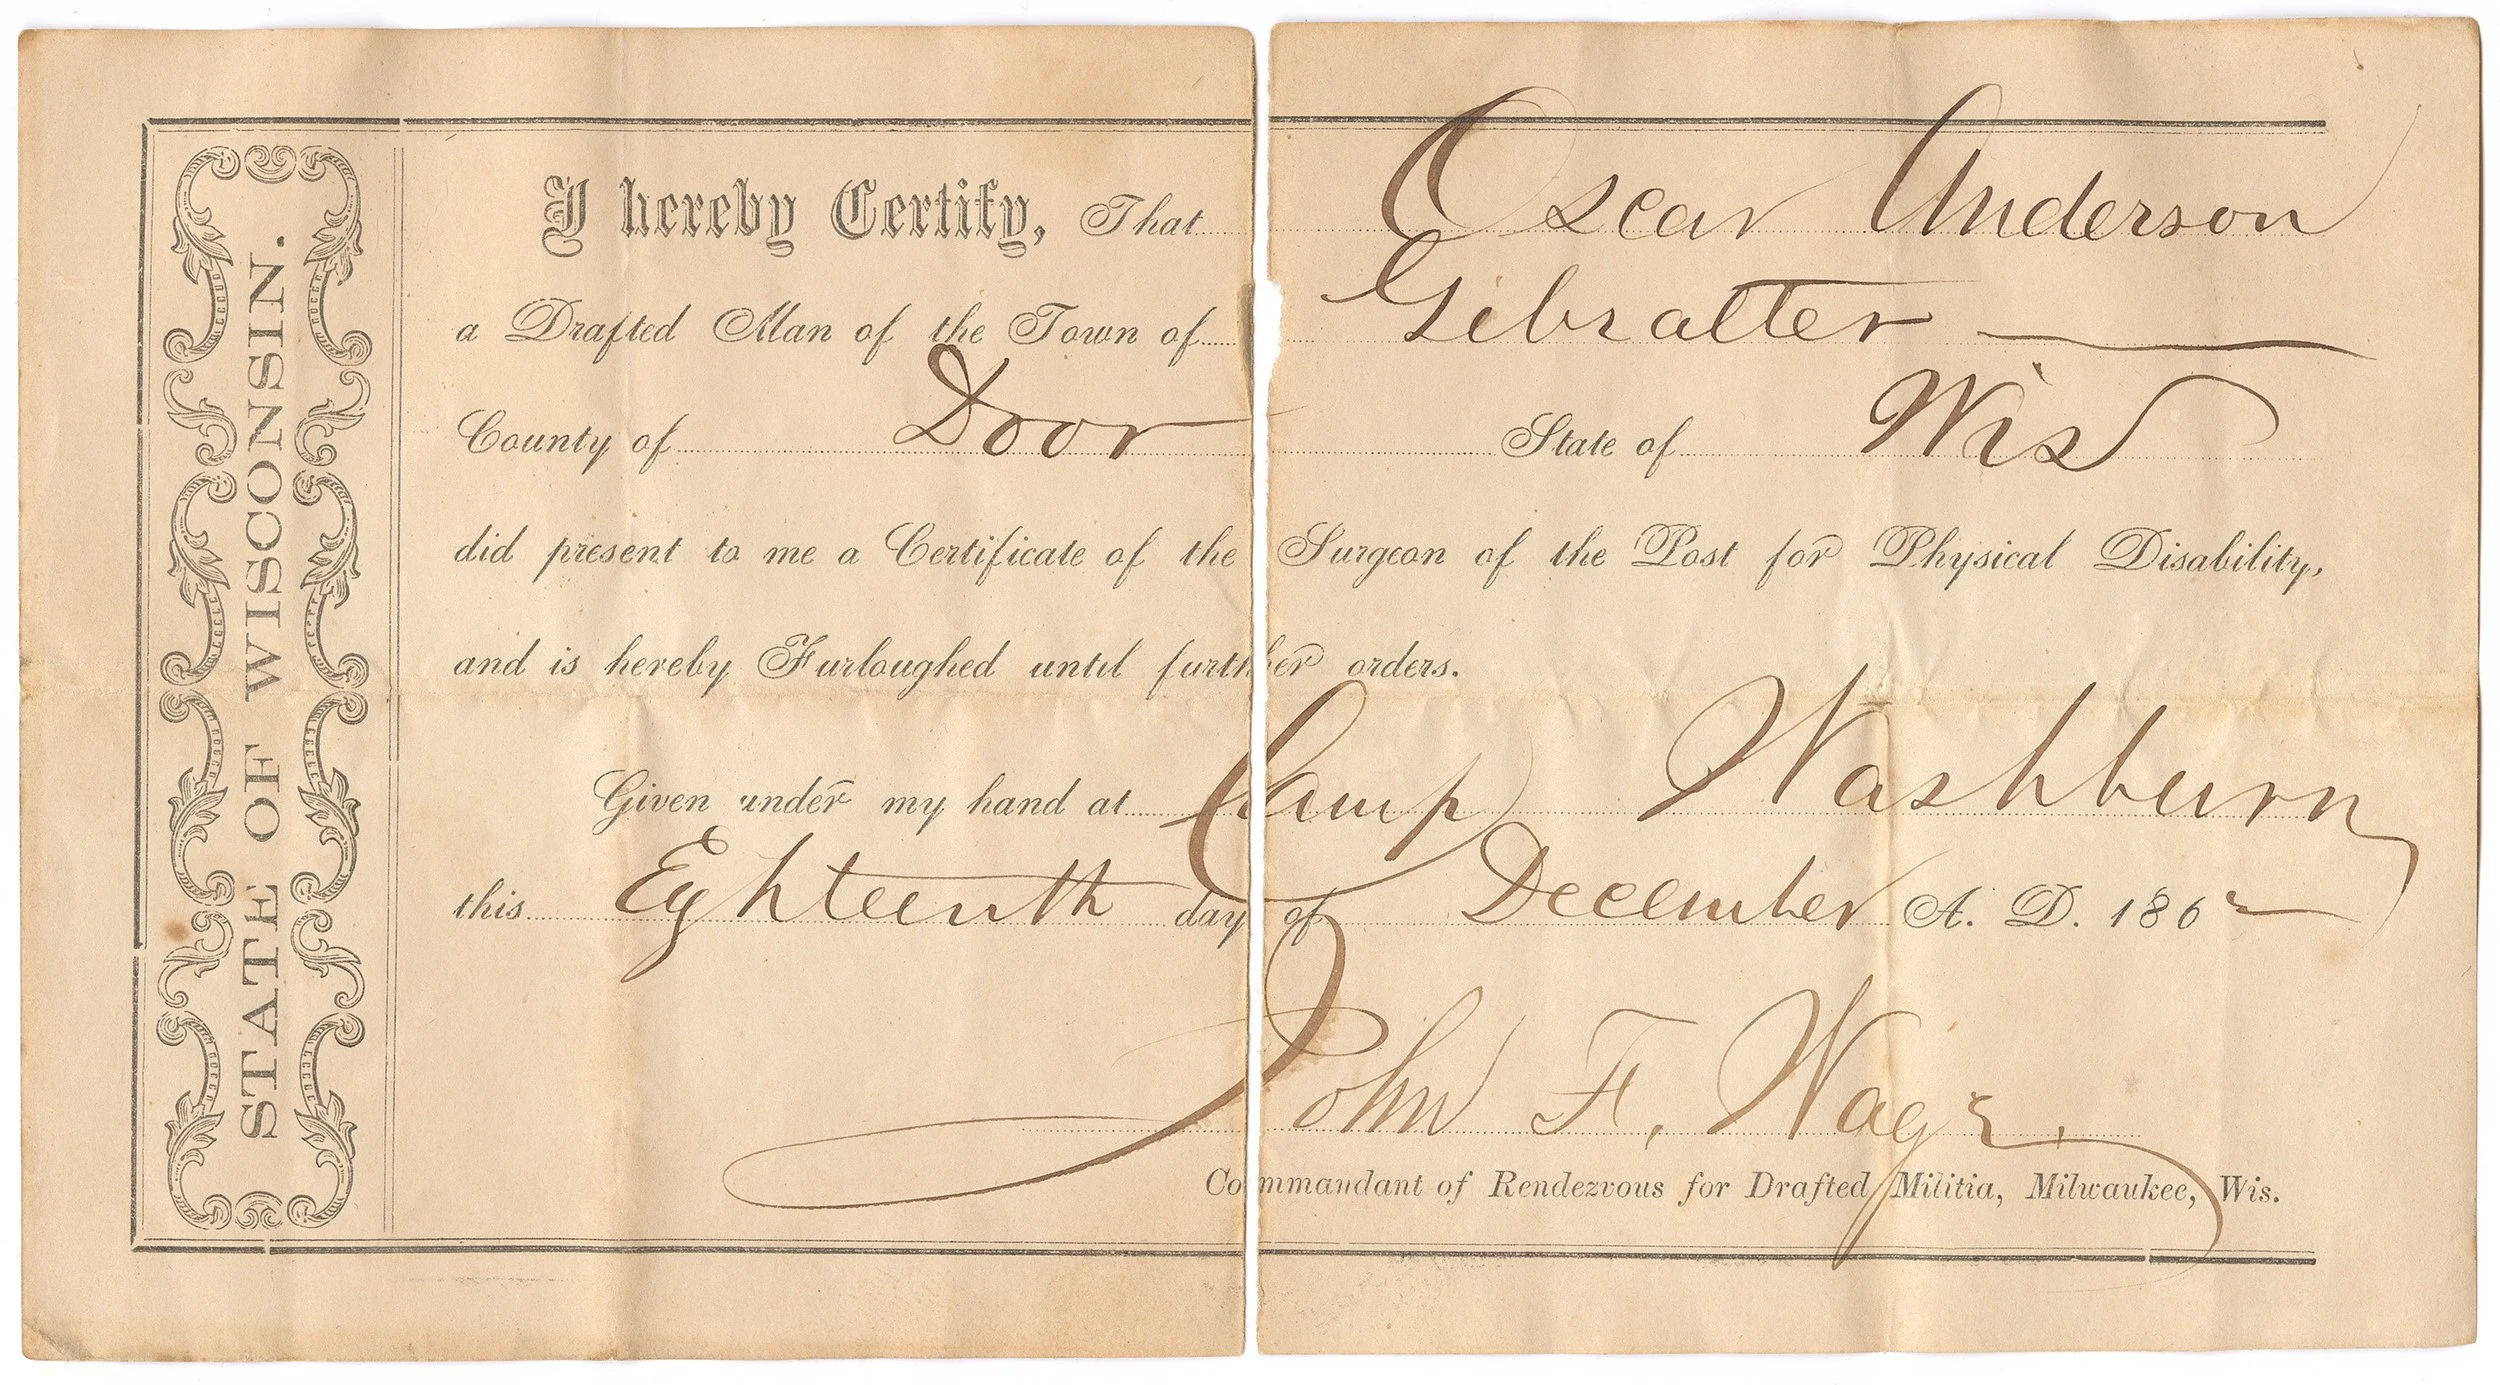 STATE OF WISCONSIN.
I hereby Certify, That Oscar Anderson
a Drafted Man of the Town of Gibralter
County of Door State of Wis
did present to me a Certificate of the Surgeon of the Post for Physical Disability,
and is hereby Furloughed until further orders.
Given under my hand at Camp Washburn
this Eghteenth day of December A. D. 1862
John F.
Commandant of Rendezvous for Drafted Militia, Milwaukee, Wis.